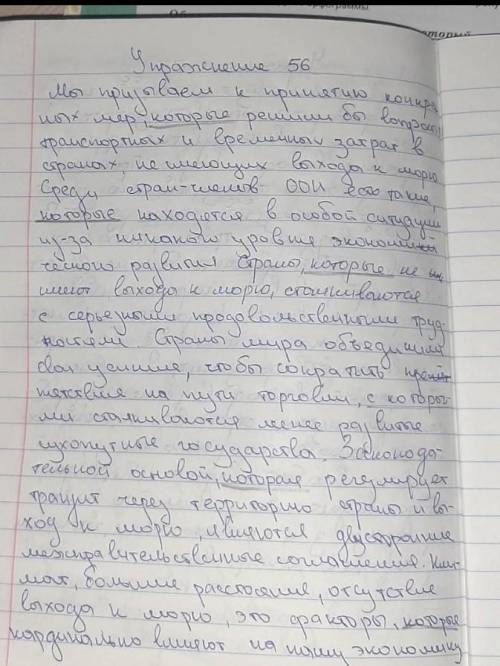 Упражнение 56
Мы призываем к принятию конкрет
ных мер, которые решили бы вопросы
транспортных и временных затрат в
странах, не имеющих выхода к морю.
Среди стран-членов ООН есть такие,
которые находятся в особой ситуации
из-за низкого уровня экономи
ческого развития. Страны, которые не
имеют выхода к морю, сталкиваются
с серьезными продовольственными труд-
ностями. Страны мира объединили
свои усилия, чтобы сократить препя
тствия на пути торговли, с которы-
ми сталкиваются менее развитые
сухопутные государства. Законода-
тельной основой, которая регулирует
транзит через территорию страны и вы-
ход к морю, являются двусторонние
межправительственные соглашения. Кли-
мат, большие расстояния, отсутствие
выхода к морю, это факторы, которые
кардинально влияют на нашу экономику